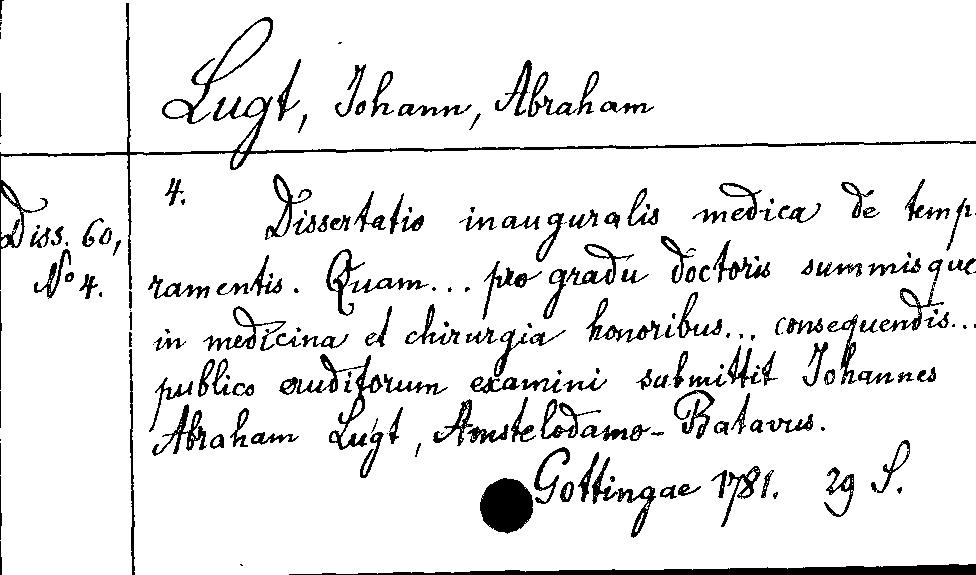 Lugt, Johann, Abraham
Diss. 60,
No 4.
4.
Dissertatio inauguralis medica de temp
ramentis. Quam... pro gradu doctoris summisque
in medicina et chirurgia honoribus... consequendis...
publico eruditorum examini submittit Johannes
Abraham Lugt, Amstelodamo-Batavus.
Gottingae 1781. 29 S.